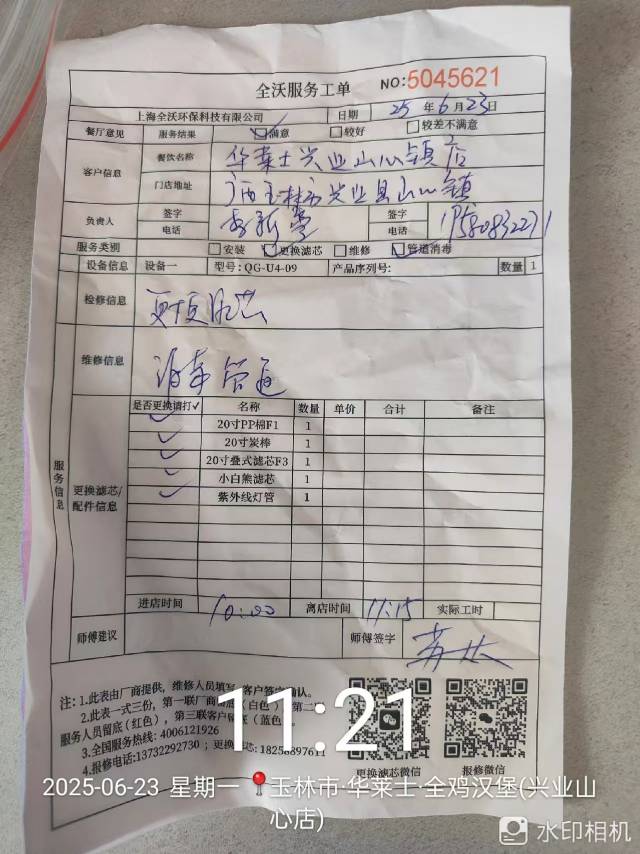 全沃服务工单 NO:5045621
上海全沃环保科技有限公司 日期 25 年 6 月 23 日
餐厅意见 服务结果 满意 较好 较差不满意
客户信息 餐饮名称 华莱士兴业山心镇店
门店地址 广西玉林市兴业县山心镇
负责人 签字 电话 签字 电话
服务类别 安装 更换滤芯 维修 管道消毒
设备信息 设备一 型号: QG-U4-09 产品序列号: 数量 1
检修信息 更换滤芯
维修信息 消毒管道
服务信息
更换滤芯/配件信息
是否更换请打✓ 名称 数量 单价 合计 备注
✓ 20寸PP棉F1 1
✓ 20寸炭棒 1
✓ 20寸叠式滤芯F3 1
✓ 小白熊滤芯 1
✓ 紫外线灯管 1
进店时间 10:00 离店时间 11:15 实际工时
师傅建议 师傅签字
注: 1.此表由厂商提供，维修人员填写，客户签字确认。
2.此表一式三份，第一联厂商留底(白色)，第二联
服务人员留底(红色)，第三联客户留底(蓝色)。
3.全国服务热线: 4006121926
4.报修电话:13732292730 ; 更换滤芯:
更换滤芯微信 报修微信
11:21
2025-06-23 星期一 玉林市·华莱士·全鸡汉堡(兴业山
心店)
水印相机